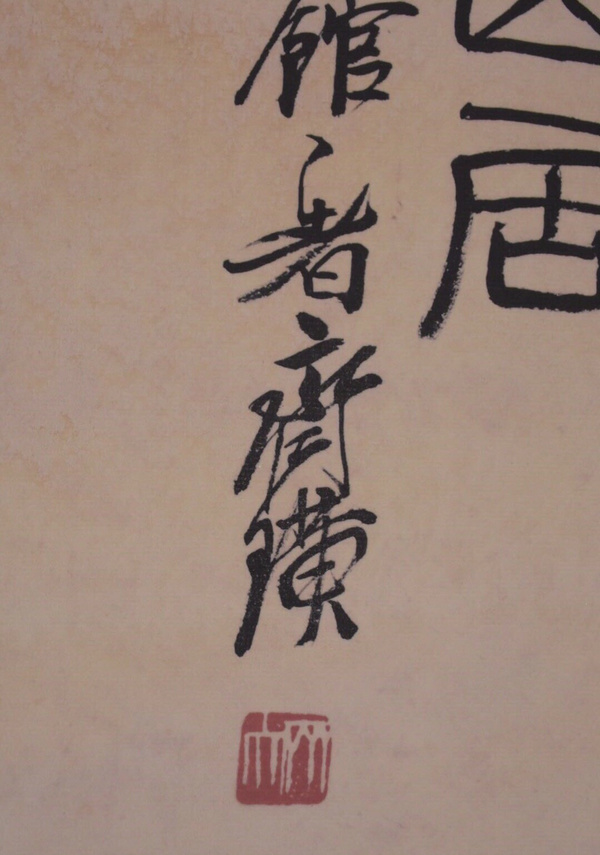 居
館者齊璜